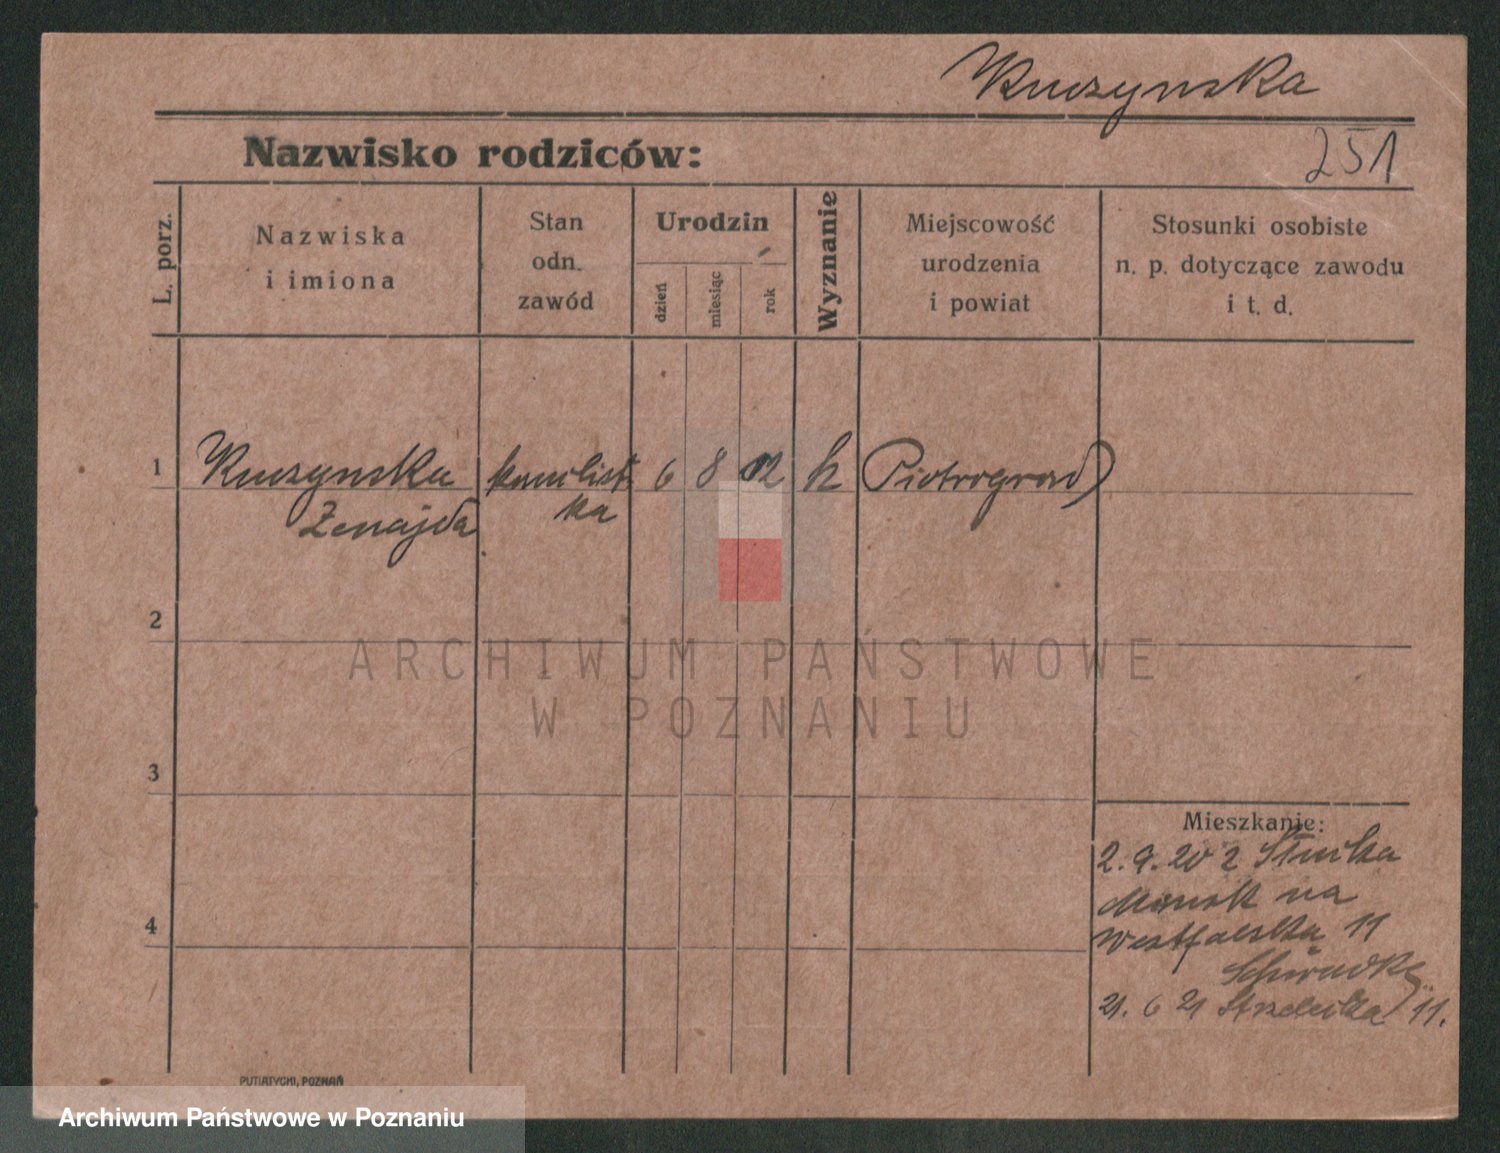 Kuczynska
251
Nazwisko rodziców:
L. porz.
Nazwiska
i imiona
Stan
odn.
zawód
Urodzin
dzień
miesiąc
rok
Wyznanie
Miejscowość
urodzenia
i powiat
Stosunki osobiste
n. p. dotyczące zawodu
i t. d.
1 Kuczynska 6 8 02 k Piotrogrod
Zenajda ka
2
3
4
Mieszkanie:
2.9.20 z
Minsk na
Westfaelska 11
21. 6 21 Strzelecka 11.
PUTIATYCKI, POZNAŃ
ARCHIWUM PAŃSTWOWE
W POZNANIU
Archiwum Państwowe w Poznaniu